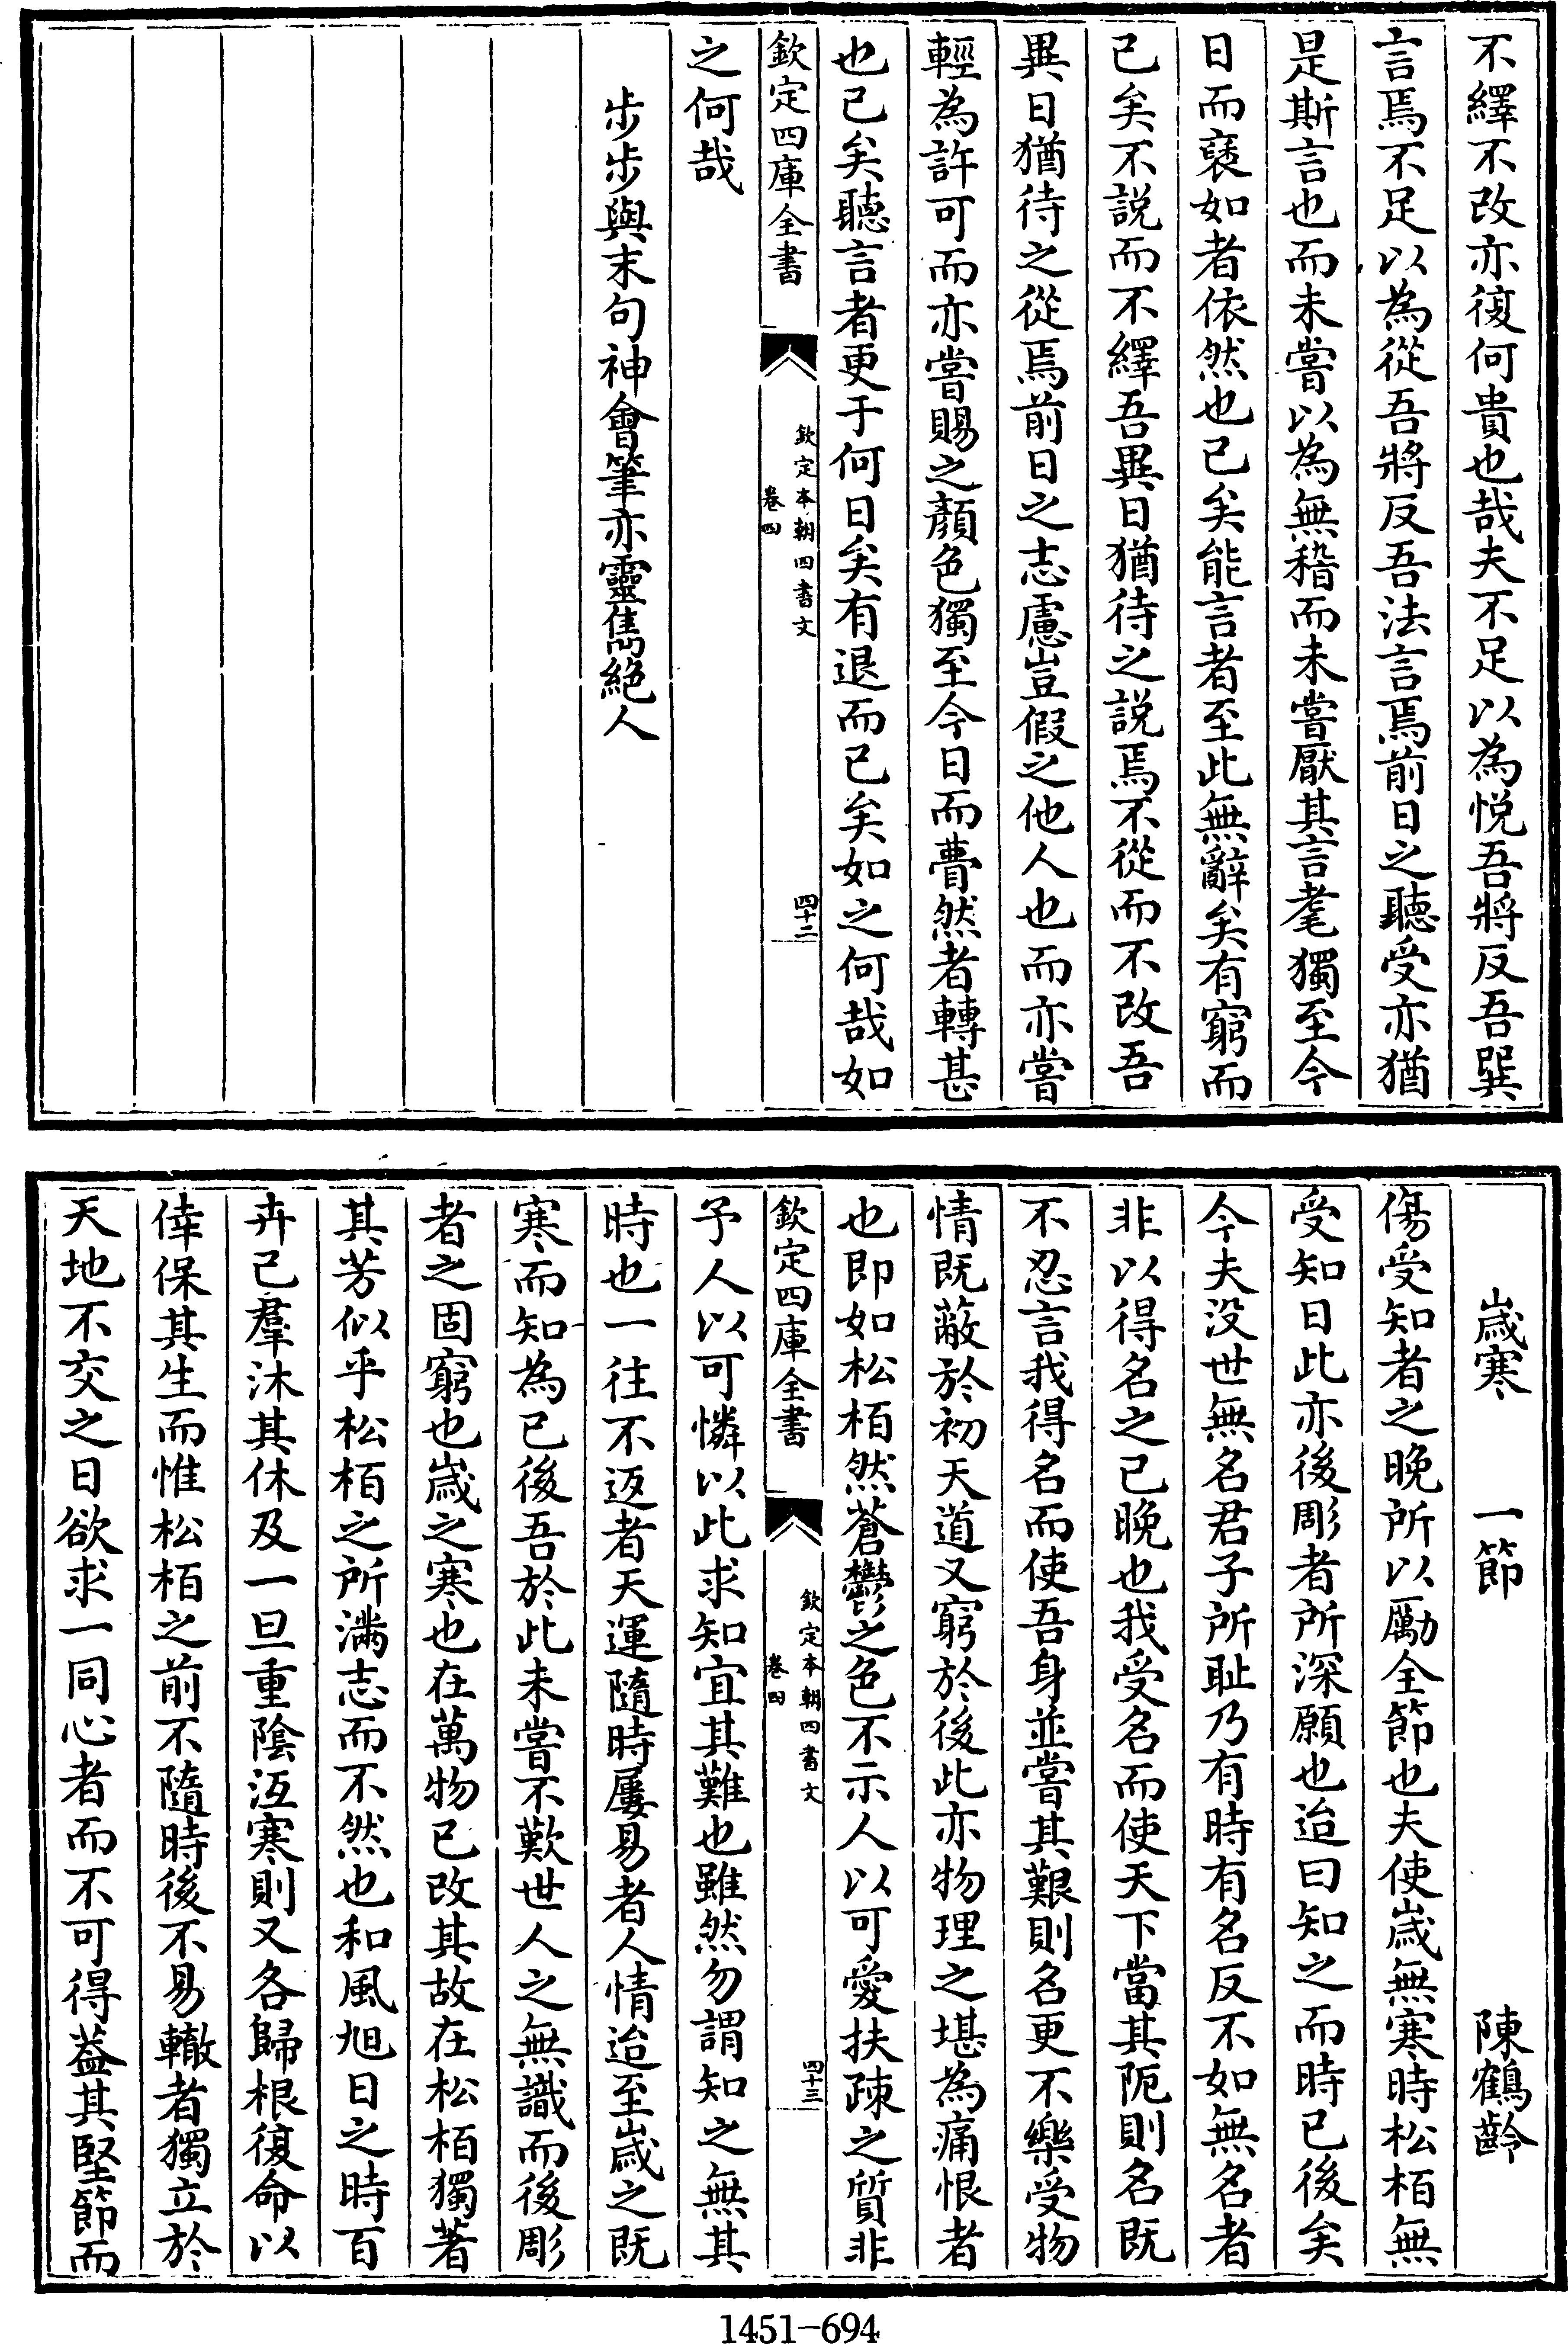 不繹不改亦復何貴也哉夫不足以為悦吾將反吾巽
言焉不足以為從吾將反吾法言焉前日之聽受亦猶
是斯言也而未嘗以為無稽而未嘗厭其言耄獨至今
日而褎如者依然也已矣能言者至此無辭矣有窮而
已矣不説而不繹吾異日猶待之説焉不從而不改吾
異日猶待之從焉前日之志慮豈假之他人也而亦嘗
輕為許可而亦嘗賜之顏色獨至今日而瞢然者轉甚
也已矣聽言者更于何日矣有退而已矣如之何哉如
欽定四庫全書
欽定本朝四書文
卷四
四十二
之何哉
步步與末句神會筆亦靈雋絶人
歲寒 一節 陳鶴齡
傷受知者之晚所以厲全節也夫使歲無寒時松栢無
受知日此亦後彫者所深願也迨曰知之而時已後矣
今夫没世無名君子所耻乃有時有名反不如無名者
非以得名之已晚也我受名而使天下當其阨則名既
不忍言我得名而使吾身並嘗其艱則名更不樂受物
情既蔽於初天道又窮於後此亦物理之堪為痛恨者
也即如松栢然蒼鬱之色不示人以可愛扶疎之質非
欽定四庫全書
欽定本朝四書文
卷四
四十三
予人以可憐以此求知宜其難也雖然勿謂知之無其
時也一往不返者天運隨時屢易者人情迨至歲之既
寒而知為已後吾於此未嘗不歎世人之無識而後彫
者之固窮也歲之寒也在萬物已改其故在松栢獨著
其芳似乎松栢之所滿志而不然也和風旭日之時百
卉已羣沐其休及一旦重陰沍寒則又各歸根復命以
倖保其生而惟松栢之前不隨時後不易轍者獨立於
天地不交之日欲求一同心者而不可得葢其堅節而
1451-694